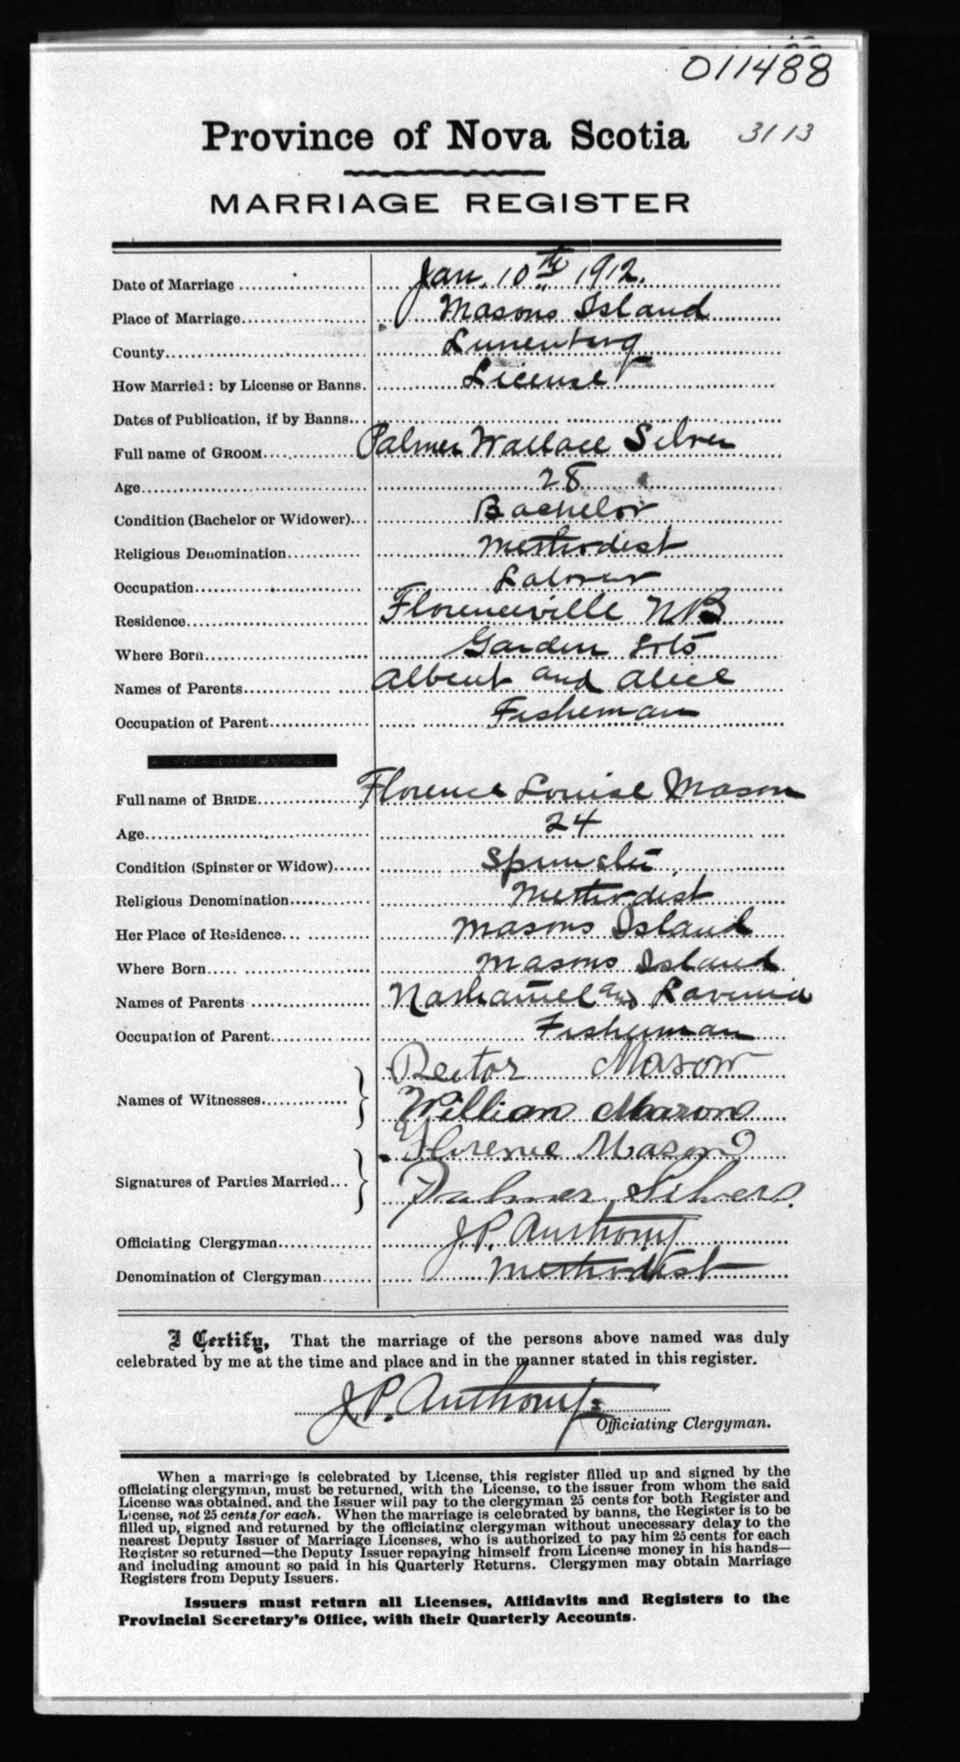 011488
Province of Nova Scotia 3113
MARRIAGE REGISTER
Date of Marriage Jan. 10th 1912.
Place of Marriage Masons Island
County Lunenburg
How Married: by License or Banns. License
Dates of Publication, if by Banns
Full name of GROOM Palmer Wallace Silver
Age 28
Condition (Bachelor or Widower) Bachelor
Religious Denomination Methodist
Occupation Laborer
Residence Florenceville NB
Where Born Garden Lots
Names of Parents Albert and Alice
Occupation of Parent Fisherman
Full name of BRIDE Florence Louise Mason
Age 24
Condition (Spinster or Widow) Spinster
Religious Denomination Methodist
Her Place of Residence Masons Island
Where Born Masons Island
Names of Parents Nathaniel and Lavinia
Occupation of Parent Fisherman
Names of Witnesses Rector Mason
William Mason
Florence Mason
Signatures of Parties Married Palmer Silvers.
Officiating Clergyman J.P. Anthony
Denomination of Clergyman Methodist
I Certify, That the marriage of the persons above named was duly
celebrated by me at the time and place and in the manner stated in this register.
J.P. Anthony
Officiating Clergyman.
When a marriage is celebrated by License, this register filled up and signed by the
officiating clergyman, must be returned, with the License, to the issuer from whom the said
License was obtained, and the Issuer will pay to the clergyman 25 cents for both Register and
License, not 25 cents for each. When the marriage is celebrated by banns, the Register is to be
filled up, signed and returned by the officiating clergyman without unecessary delay to the
nearest Deputy Issuer of Marriage Licenses, who is authorized to pay him 25 cents for each
Register so returned—the Deputy Issuer repaying himself from License money in his hands—
and including amount so paid in his Quarterly Returns. Clergymen may obtain Marriage
Registers from Deputy Issuers.
Issuers must return all Licenses, Affidavits and Registers to the
Provincial Secretary's Office, with their Quarterly Accounts.